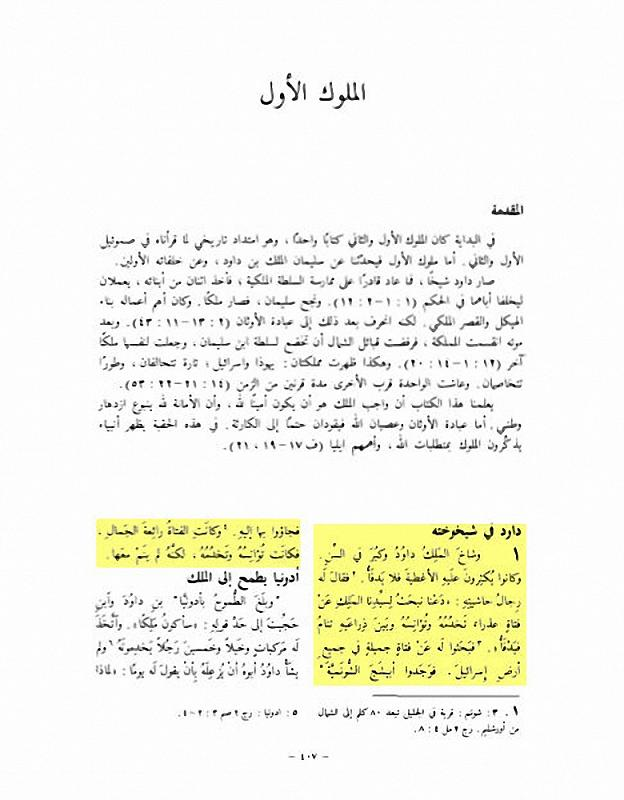 الملوك الأول
المقدمة
في البداية كان الملوك الأول والثاني كتابًا واحدًا ، وهو امتداد تاريخي لما قرأناه في صموئيل
الأول والثاني. أما ملوك الأول فيحدثنا عن سليمان الملك بن داود ، وعن خلفائه الأولين.
صار داود شيخًا، فما عاد قادرًا على ممارسة السلطة الملكية ؛ فأخذ اثنان من أبنائه ، يعملان
ليخلفا أباهما في الحكم (١ : ١-٢ : ١٢). ونجح سليمان ، فصار ملكًا. وكان أهم أعماله بناء
الهيكل والقصر الملكي. لكنه انحرف بعد ذلك إلى عبادة الأوثان (٢ : ١٣-١١ : ٤٣). وبعد
موته انقسمت المملكة ، فرفضت قبائل الشمال أن تخضع لسلطة ابن سليمان ، وجعلت لنفسها ملكًا
آخر (١٢ : ١-١٤ : ٢٠). وهكذا ظهرت مملكتان : يهوذا واسرائيل ؛ تارة تتحالفان ، وطورًا
تتخاصمان. وعاشت الواحدة قرب الأخرى مدة قرنين من الزمن (١٤ : ٢١-٢٢ : ٥٣).
يعلمنا هذا الكتاب أن واجب الملك هو أن يكون أمينًا لله ، وأن الأمانة لله ينبوع ازدهار
وطني. أما عبادة الأوثان وعصيان الله فيقودان حتمًا إلى الكارثة. في هذه الحقبة يظهر أنبياء
يذكّرون الملوك بمتطلبات الله ، وأهمهم ايليا (ف ١٧-١٩ ، ٢١).
دارد في شيخوخته
١ وشاخَ المَلِكُ داوُدُ وكَبُرَ في السِّنِّ.
وكانوا يُكثِرونَ علَيهِ الأغطيةَ فلا يَدفَأُ. ٢ فقالَ لَه
رِجالُ حاشيتِهِ : «دَعْنا نبحَثُ لِسيِّدِنا المَلِكِ عَنْ
فتاةٍ عذراءَ تَخدُمُهُ وتُؤانِسُهُ وبَينَ ذِراعَيهِ تنامُ
فيَدْفَأُ». ٣ فبَحَثوا لَه عَنْ فتاةٍ جميلةٍ في جميعِ
أرضِ إِسرائيلَ. فوَجَدوا أبيشَجَ الشُّونَميَّةَ
فجاؤوا بِها إليهِ. ٤ وكانَتِ الفتاةُ رائِعةَ الجَمالِ ،
فكانَت تُؤانِسُهُ وتَخدُمُهُ ، لكنَّهُ لم يَنَمْ معَها.
أدونيا يطمح إلى الملك
٥ وبلَغَ الطُّموحُ بأدونيَّا بنِ داوُدَ وابنِ
حَجِّيثَ إلى حَدِّ قولِهِ : «سأكونُ مَلِكًا». وأتَّخذَ
لَه مَركباتٍ وخَيلاً وخمسينَ رَجُلاً يَخدِمونَهُ ٦ ولم
يشَأْ داوُدُ أبوهُ أنْ يُزعِلَهُ بِأنْ يقولَ لَه يومًا : «لماذا
١. ٣ : شونم : قرية في الجليل تبعد ٨٠ كلم إلى الشمال
من أورشليم. رج ٢ مل ٤ : ٨.
٥ : ادونيا : رج ٢ صم ٣ : ٢-٤.
- ٤٠٧ -